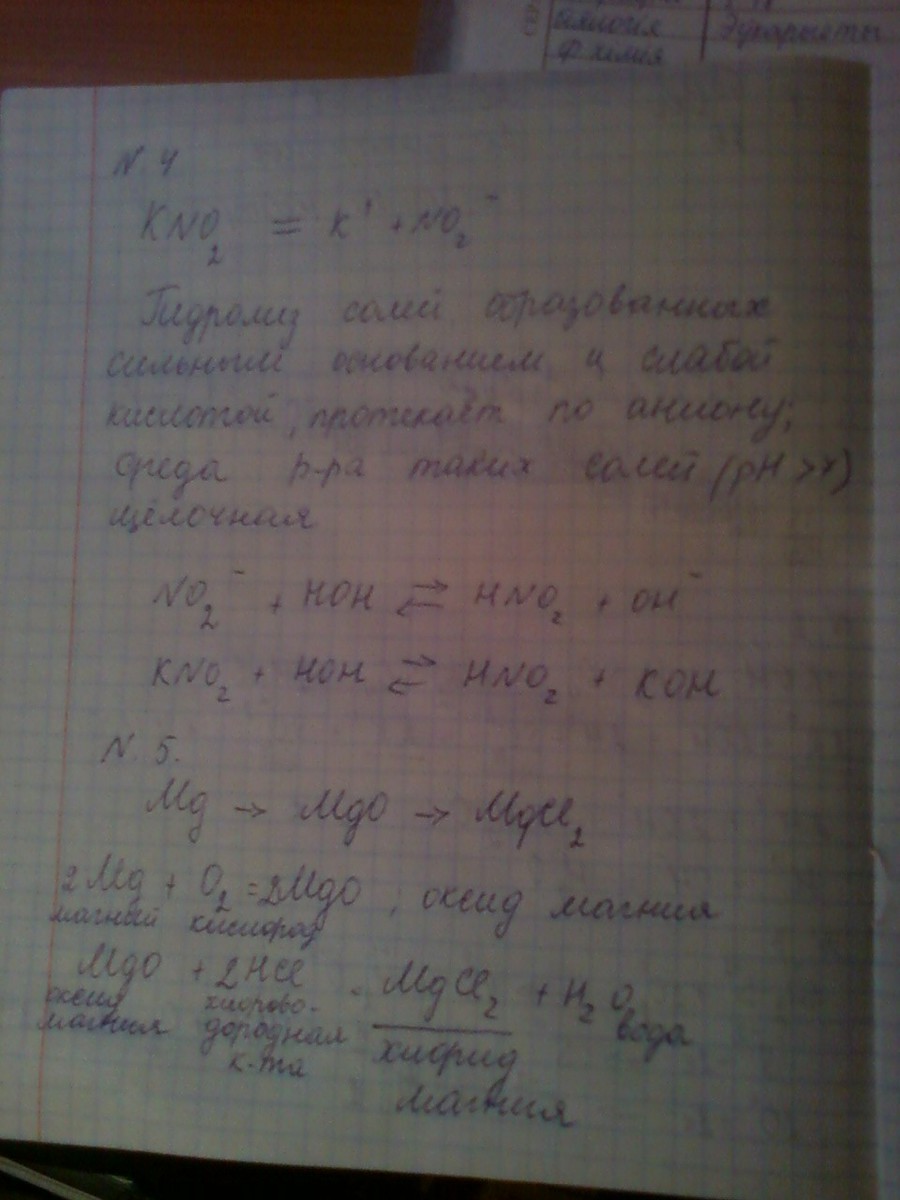 биология Эукариоты
химия
N. 4
KNO₂ = K⁺ + NO₂⁻
Гидролиз солей образованных
сильным основанием и слабой
кислотой, протекает по аниону;
среда р-ра таких солей (pH >7)
щёлочная
NO₂⁻ + HOH ⇄ HNO₂ + OH⁻
KNO₂ + HOH ⇄ HNO₂ + KOH
N. 5.
Mg → MgO → MgCl₂
2Mg + O₂ = 2MgO, оксид магния
магний кислород
MgO + 2HCl = MgCl₂ + H₂O
оксид хлорово- вода
магния дородная хлорид
к-та
магния